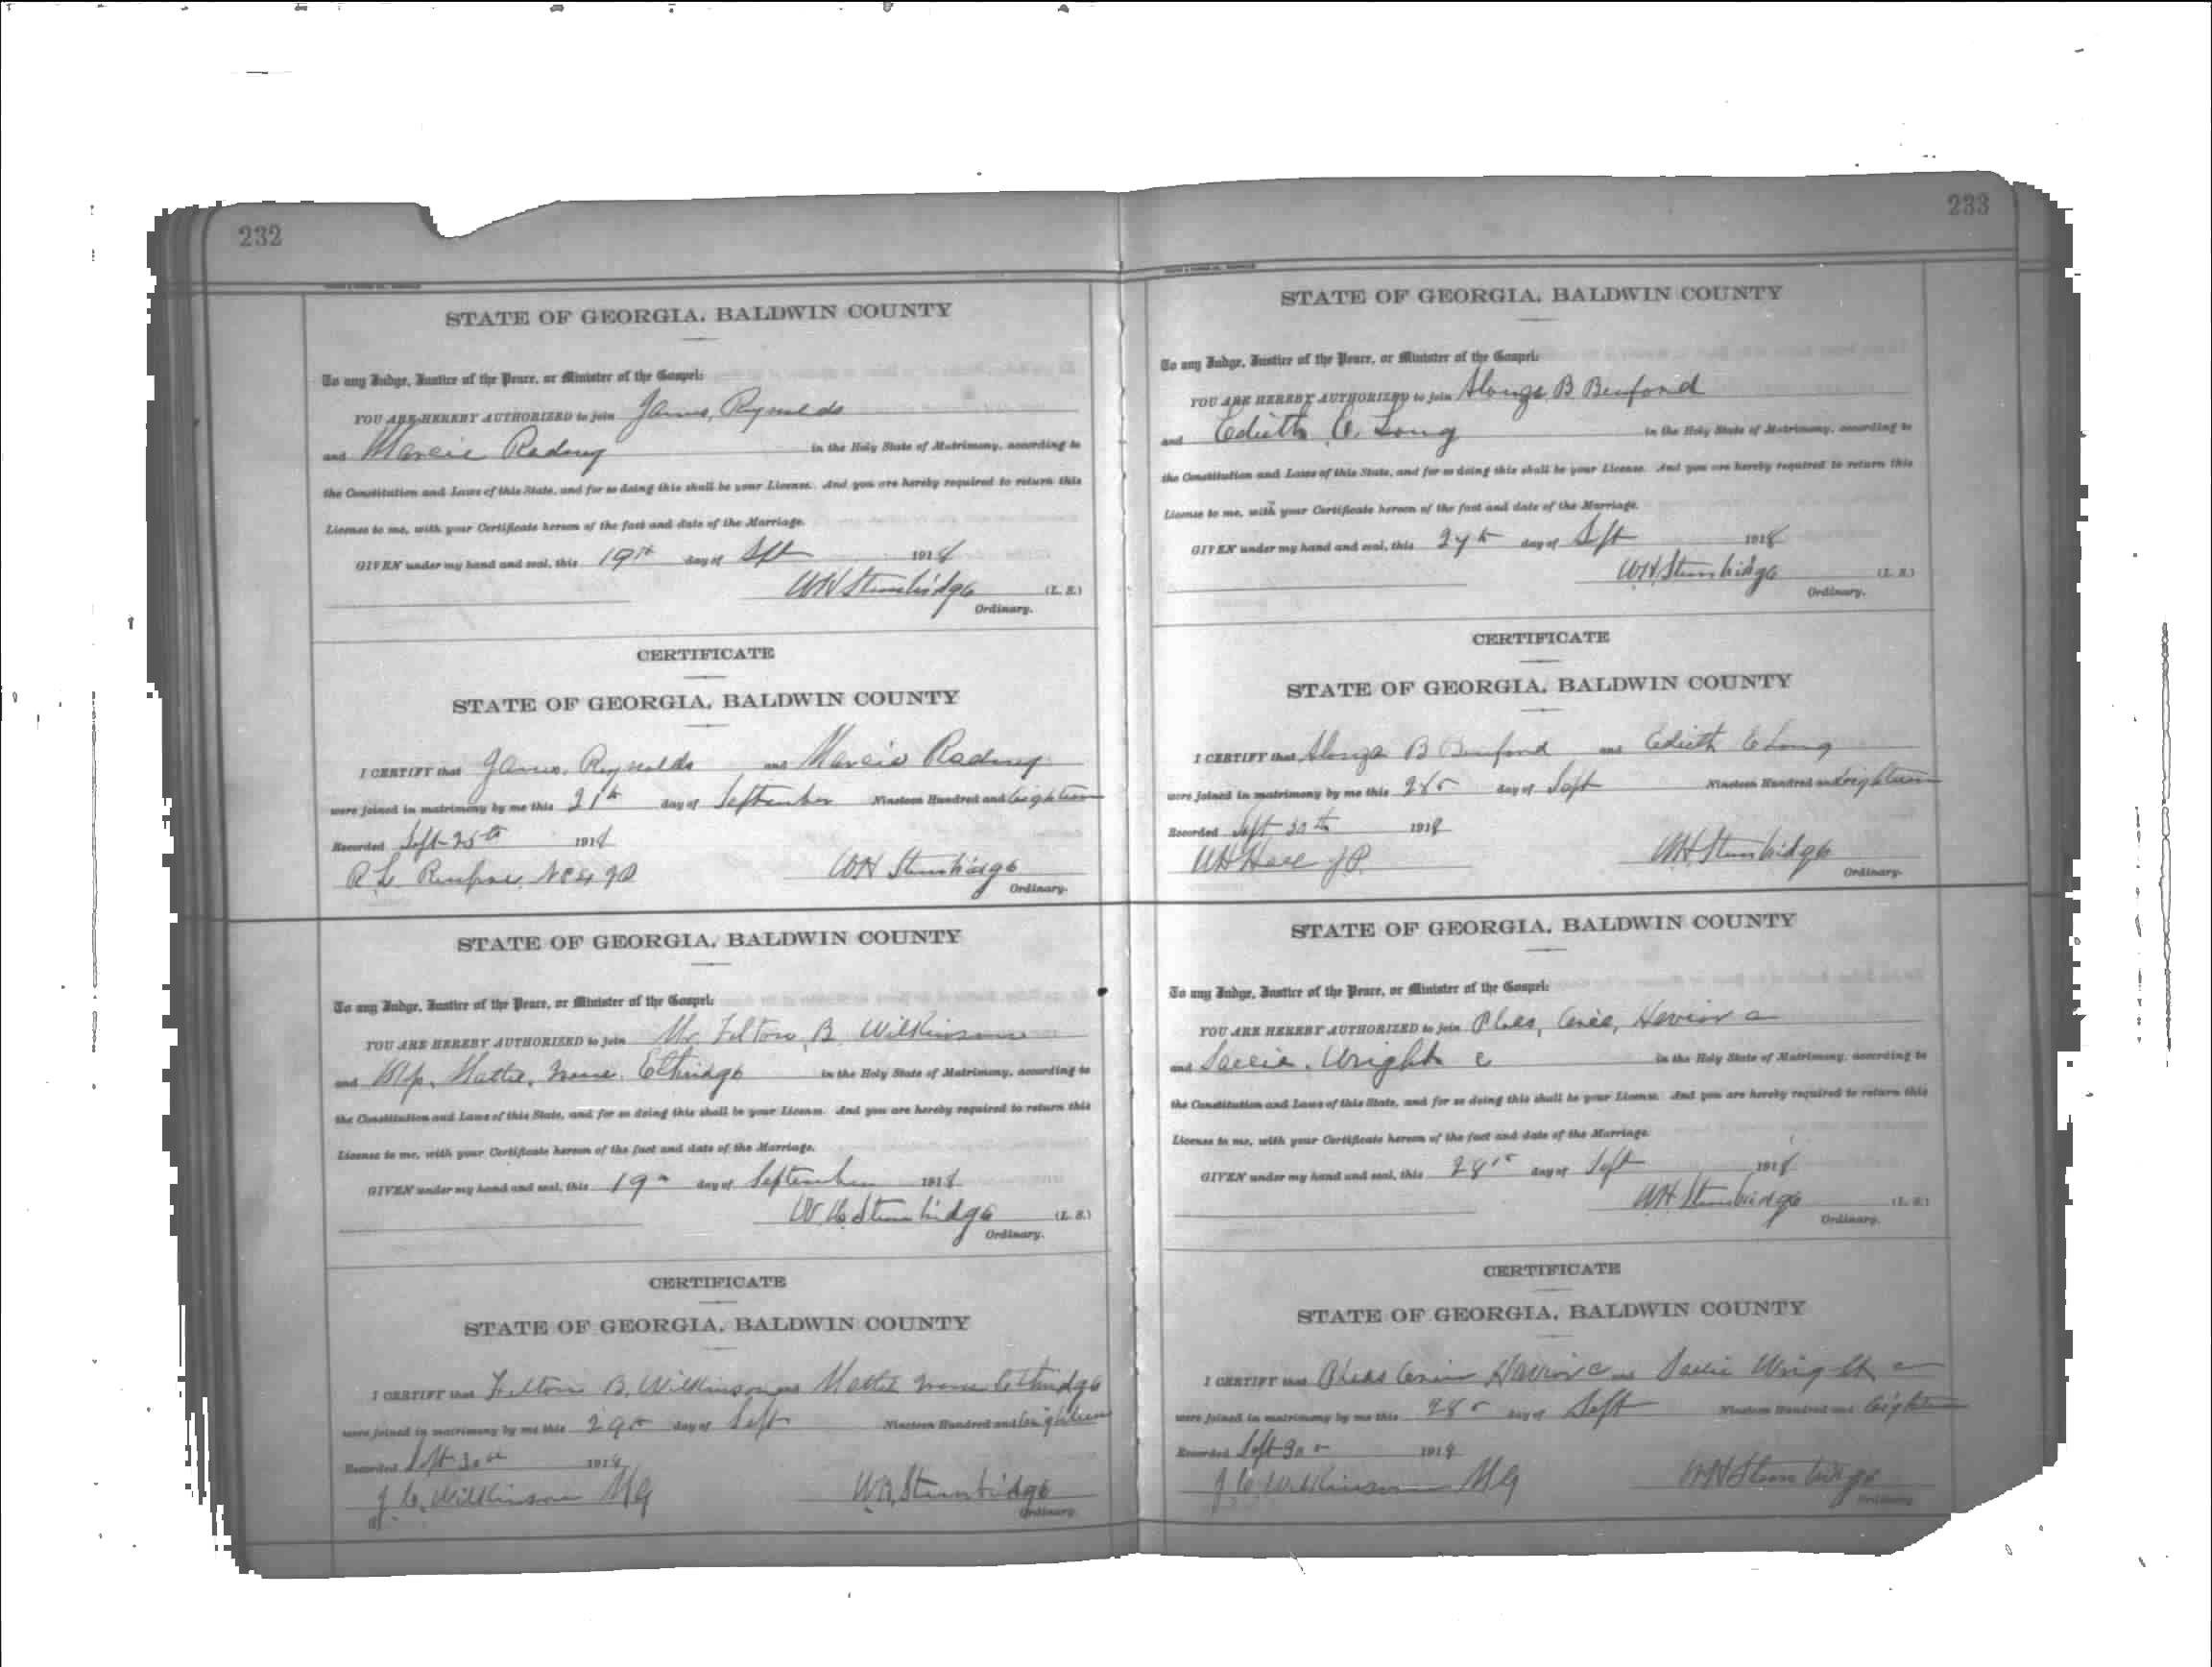 232
STATE OF GEORGIA, BALDWIN COUNTY
To any Judge, Justice of the Peace, or Minister of the Gospel:
YOU ARE HEREBY AUTHORIZED to join James, Reynolds
and Marcie in the Holy State of Matrimony, according to
the Constitution and Laws of this State, and for so doing this shall be your License. And you are hereby required to return this
License to me, with your Certificate hereon of the fact and date of the Marriage.
GIVEN under my hand and seal, this 19th day of Sept 1918
WH Stembridge (L. S.)
Ordinary.
CERTIFICATE
STATE OF GEORGIA, BALDWIN COUNTY
I CERTIFY that James, Reynolds and Marcie
were joined in matrimony by me this 21th day of September Nineteen Hundred and Eighteen
Recorded Sept 25th 1918
R L WH Stembridge
Ordinary.
STATE OF GEORGIA, BALDWIN COUNTY
To any Judge, Justice of the Peace, or Minister of the Gospel:
YOU ARE HEREBY AUTHORIZED to join Mr Felton, B. Wilkinson
and Mattie, Ethridge in the Holy State of Matrimony, according to
the Constitution and Laws of this State, and for so doing this shall be your License. And you are hereby required to return this
License to me, with your Certificate hereon of the fact and date of the Marriage.
GIVEN under my hand and seal, this 19 day of September 1918
W H Stembridge (L. S.)
Ordinary.
CERTIFICATE
STATE OF GEORGIA, BALDWIN COUNTY
I CERTIFY that Felton B. Wilkinson and Mattie Ethridge
were joined in matrimony by me this 29 day of Sept Nineteen Hundred and Eighteen
Recorded Sept 30 1918
J. C. Wilkinson MG WH Stembridge
Ordinary
233
STATE OF GEORGIA, BALDWIN COUNTY
To any Judge, Justice of the Peace, or Minister of the Gospel:
YOU ARE HEREBY AUTHORIZED to join Alonza, B
and Edieth C. Long in the Holy State of Matrimony, according to
the Constitution and Laws of this State, and for so doing this shall be your License. And you are hereby required to return this
License to me, with your Certificate hereon of the fact and date of the Marriage.
GIVEN under my hand and seal, this day of Sept 1918
WH Stembridge (L. S.)
Ordinary.
CERTIFICATE
STATE OF GEORGIA, BALDWIN COUNTY
I CERTIFY that Alonza B and Edieth C Long
were joined in matrimony by me this 28 day of Sept Nineteen Hundred and Eighteen
Recorded Sept 30th 1918
WH JP. WH Stembridge
Ordinary.
STATE OF GEORGIA, BALDWIN COUNTY
To any Judge, Justice of the Peace, or Minister of the Gospel:
YOU ARE HEREBY AUTHORIZED to join
and Sallie. Wright c in the Holy State of Matrimony, according to
the Constitution and Laws of this State, and for so doing this shall be your License. And you are hereby required to return this
License to me, with your Certificate hereon of the fact and date of the Marriage.
GIVEN under my hand and seal, this 28 day of Sept 1918
WH Stembridge (L. S.)
Ordinary.
CERTIFICATE
STATE OF GEORGIA, BALDWIN COUNTY
I CERTIFY that and Sallie Wright c
were joined in matrimony by me this 28 day of Sept Nineteen Hundred and Eighteen
Recorded Sept 30 1918
J C Wilkinson MG WH Stembridge
Ordinary